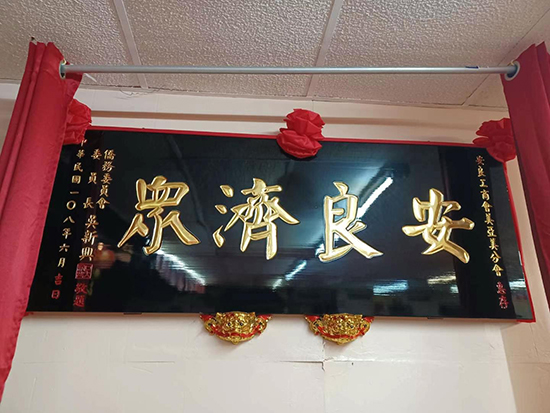 安良工商會美亞美分會 惠存
安良濟眾
僑務委員會
委員長 吳新興
中華民國一〇八年六月吉日